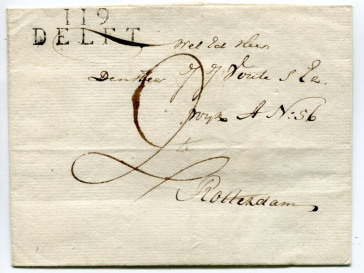 119
DELFT
Wel Ed Heer
Den Heer J J
Wyk A No: 56
2
te
Rotterdam